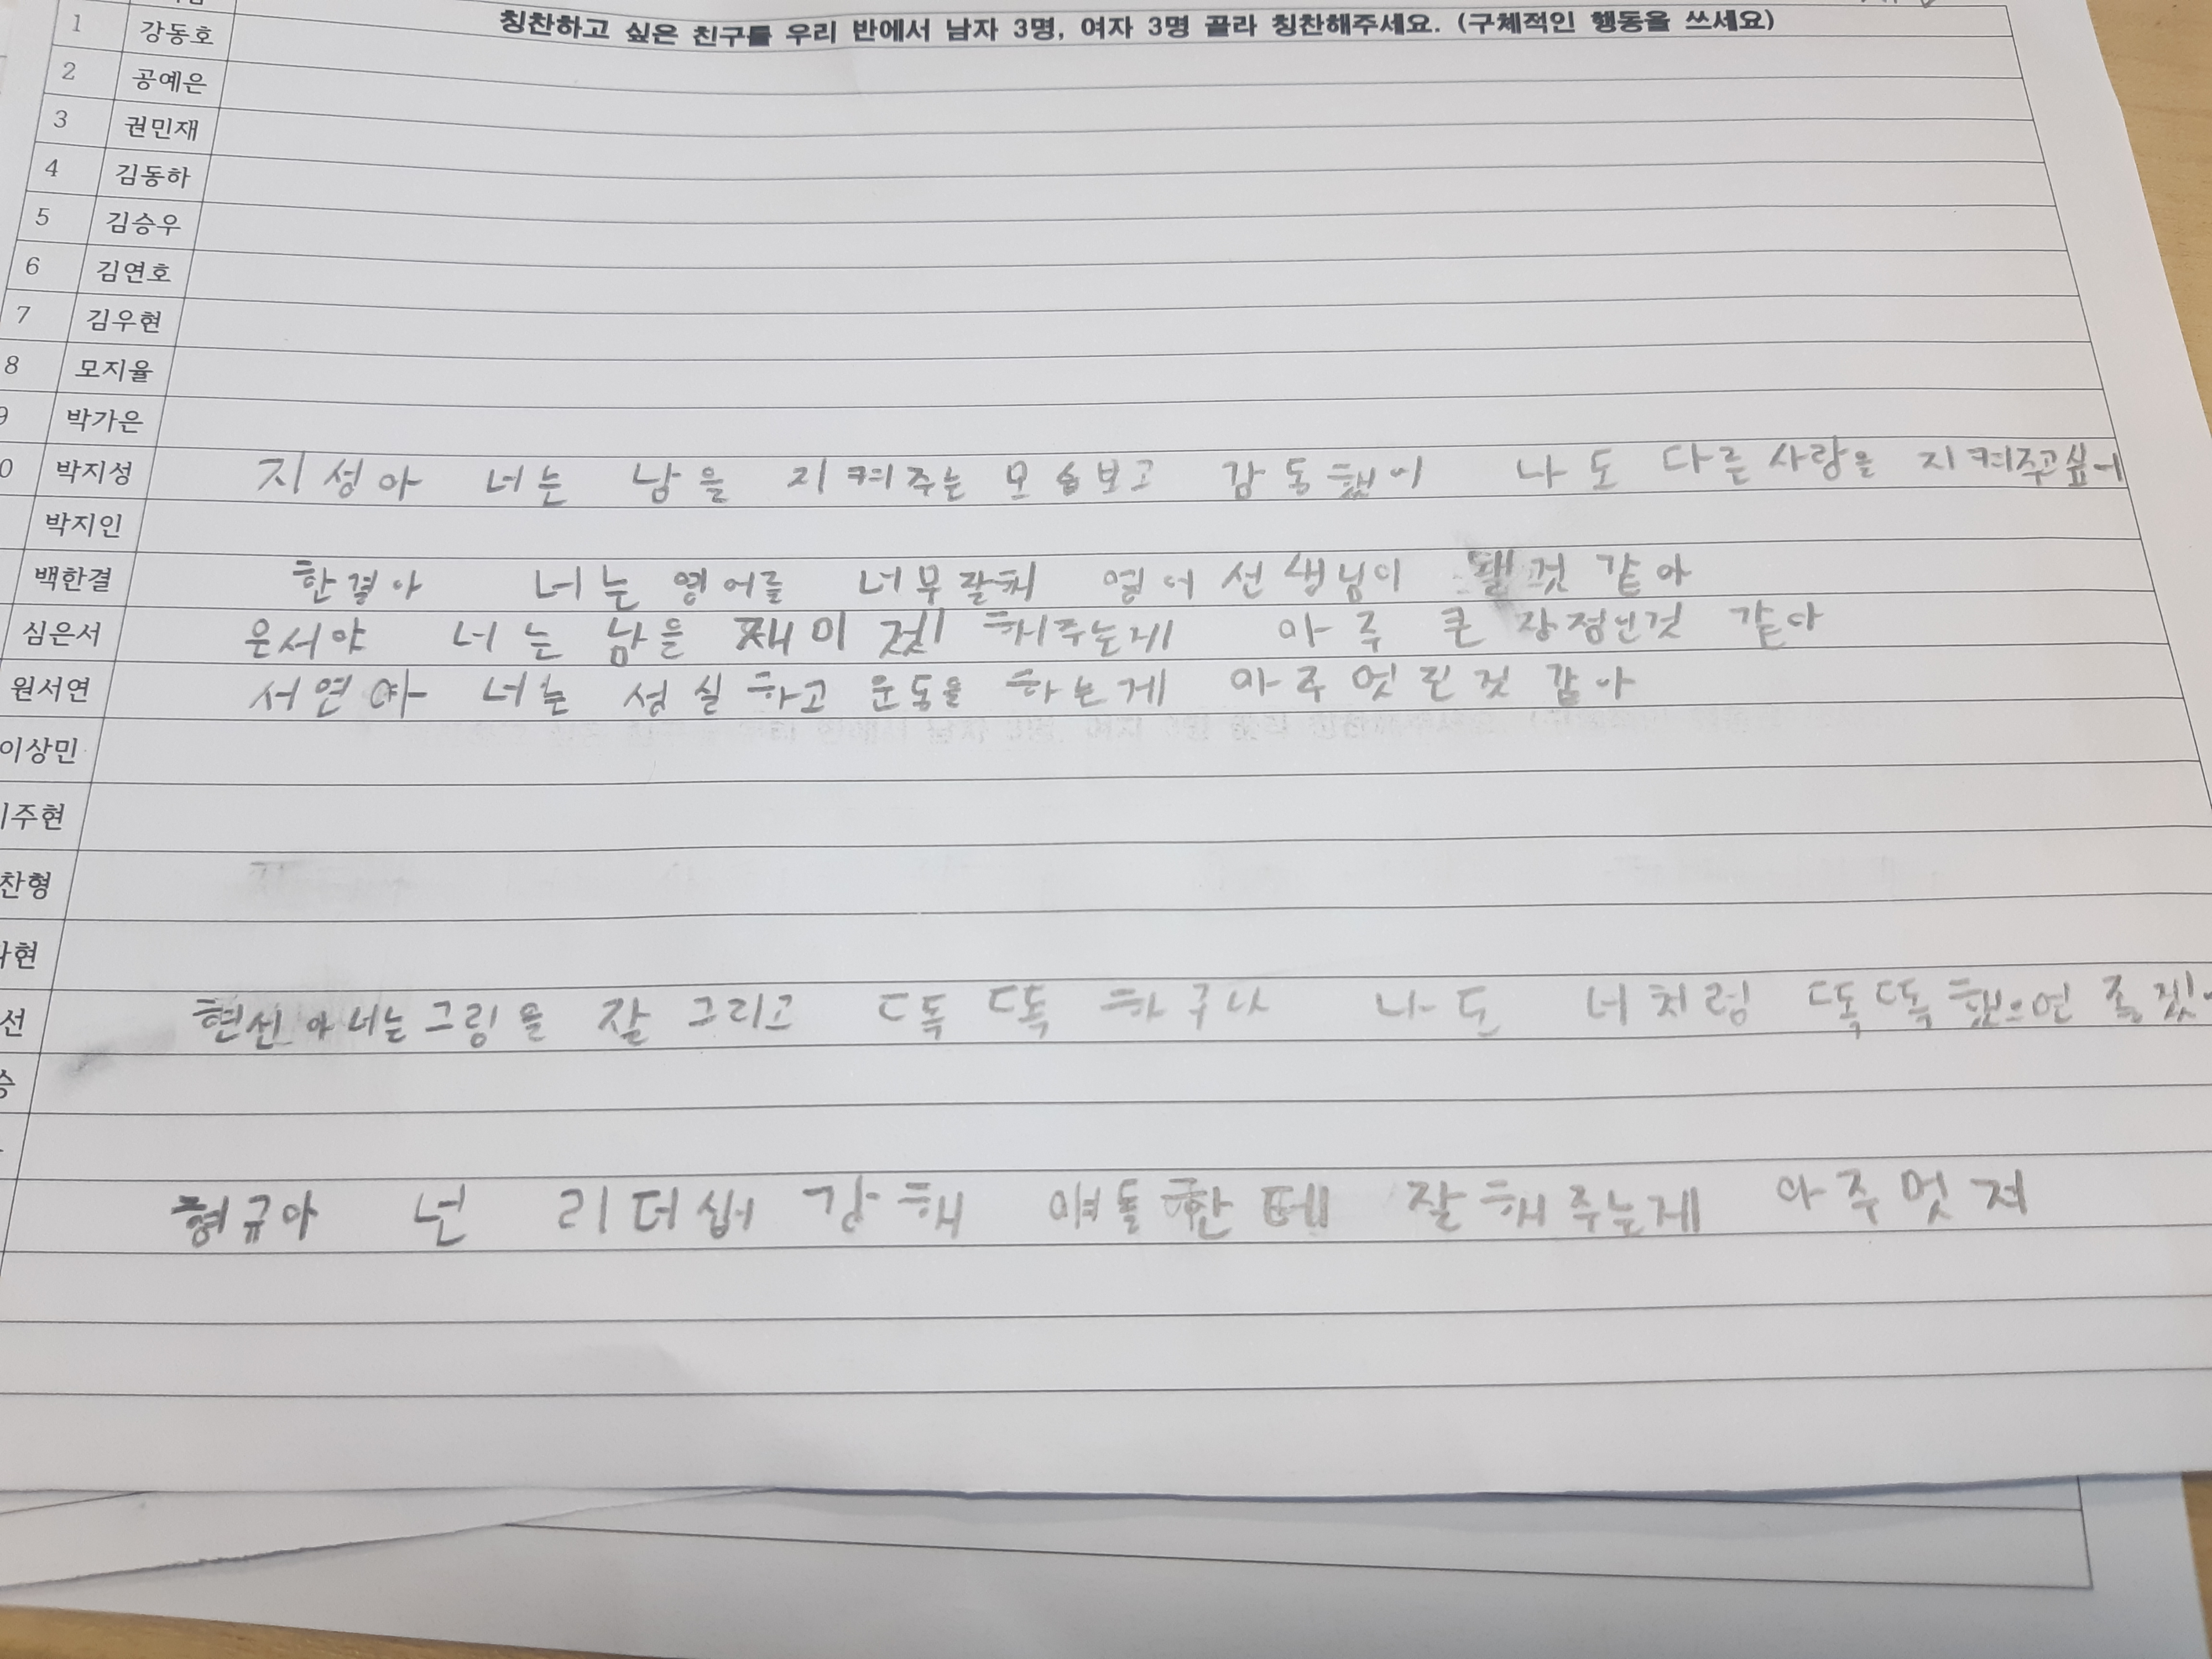 칭찬하고 싶은 친구를 우리 반에서 남자 3명, 여자 3명 골라 칭찬해주세요. (구체적인 행동을 쓰세요)
1 강동호
2 공예은
3 권민재
4 김동하
5 김승우
6 김연호
7 김우현
8 모지율
9 박가은
0 박지성 지성아 너는 남을 지켜주는 모습보고 감동했어 나도 다른사람을 지켜주고싶어
박지인
백한결 한결아 너는 영어를 너무잘해 영어 선생님이 될것 같아
심은서 은서야 너는 남을 재미겄 해주는게 아주 큰 장점인것 같아
원서연 서연아 너는 성실하고 운동을 하는게 아주 멋진것 같아
이상민
이주현
찬형
현
선 현선아 너는 그림을 잘 그리고 똑똑하구나 나도 너처럼 똑똑했으면 좋겠
승
형규아 넌 리더쉽 강해 얘들한테 잘해주는게 아주멋져